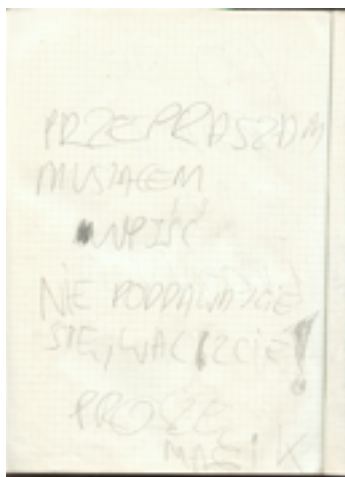 PRZEPRASZAM
MUSIAŁEM
WPIŚĆ
NIE PODDAWAJCIE
SIĘ, WALCZCIE!
PROSZĘ